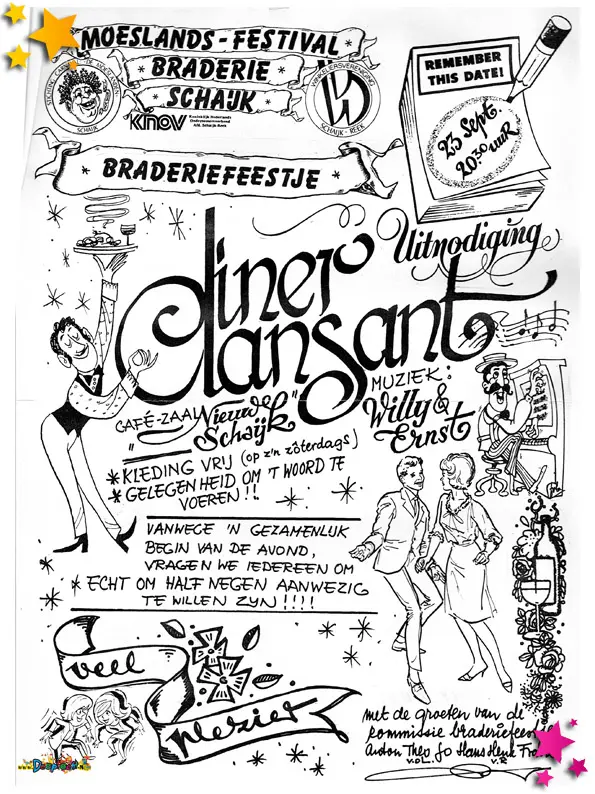 MOESLANDS-FESTIVAL
* BRADERIE *
* SCHAIJK *
KNOV
Koninklijk Nederlands
Ondernemersverbond
SCHAIJK
SCHAIJK - REEK
REMEMBER
THIS DATE!
23 Sept.
20.30 uuR
* BRADERIEFEESTJE *
Uitnodiging
diner
dansant
CAFÉ-ZAAL
"Nieuw
Schaijk"
MUZIEK:
Willy &
Ernst
* KLEDING VRIJ (op z'n zôterdags)
* GELEGENHEID OM 'T WOORD TE
VOEREN!!
VANWEGE 'N GEZAMENLIJK
BEGIN VAN DE AVOND,
VRAGEN WE IEDEREEN OM
* ECHT OM HALF NEGEN AANWEZIG
TE WILLEN ZYN!!!!
veel
plezier
met de groeten van de
kommissie braderiefeest
Anton Theo Jo Hans Henk
v.d.L. v.R